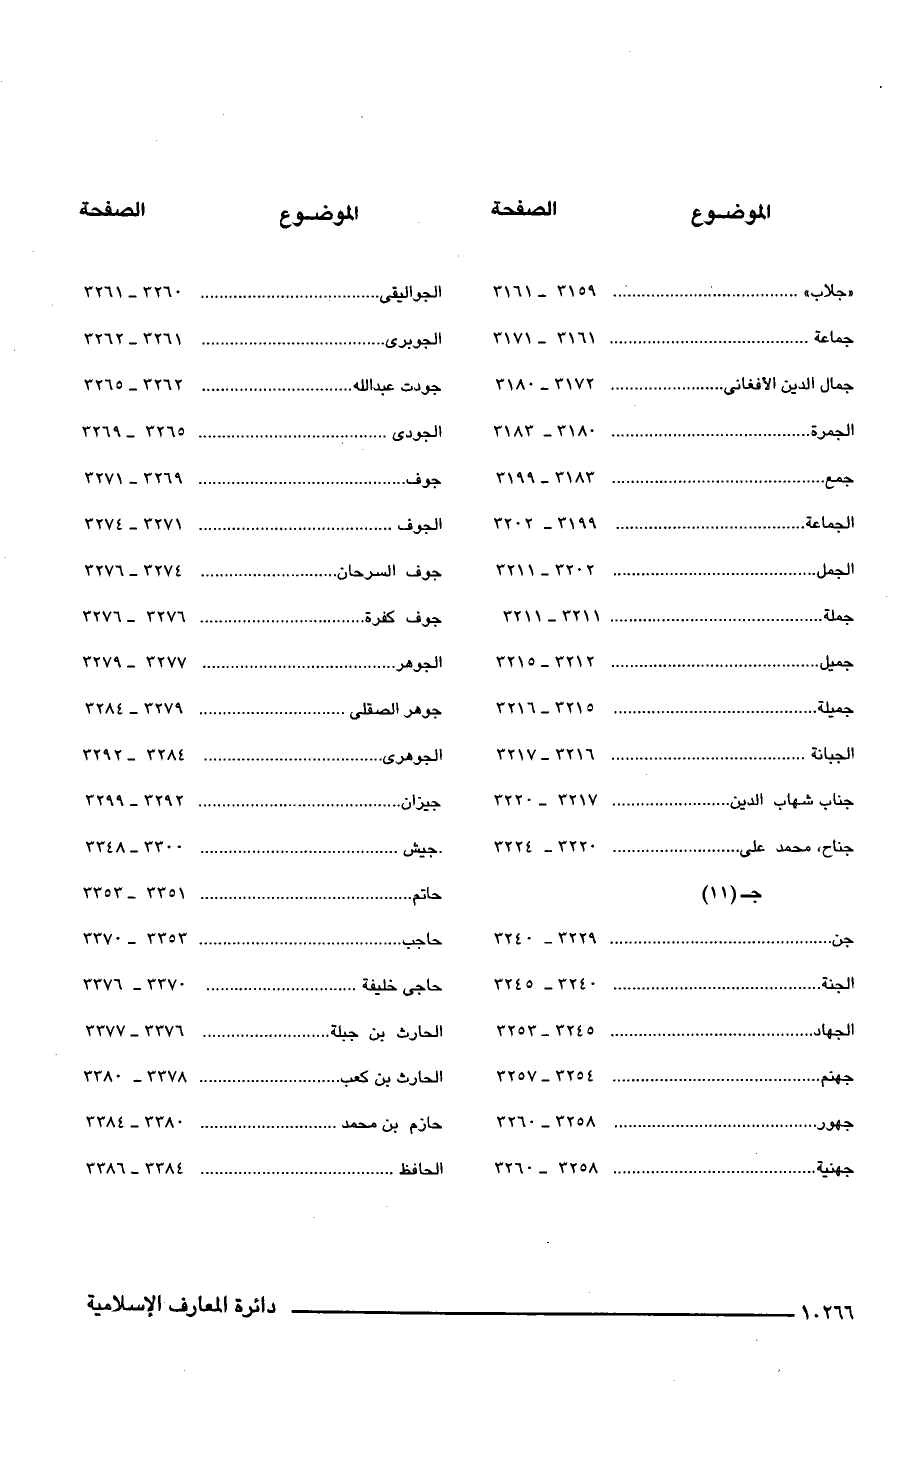 الموضوع الصفحة
«جلاب» ........ ٣١٥٩ ـ ٣١٦١
جماعة ........ ٣١٦١ ـ ٣١٧١
جمال الدين الأفغانى ........ ٣١٧٢ ـ ٣١٨٠
الجمرة ........ ٣١٨٠ ـ ٣١٨٣
جمع ........ ٣١٨٣ ـ ٣١٩٩
الجماعة ........ ٣١٩٩ ـ ٣٢٠٢
الجمل ........ ٣٢٠٢ ـ ٣٢١١
جملة ........ ٣٢١١ ـ ٣٢١١
جميل ........ ٣٢١٢ ـ ٣٢١٥
جميلة ........ ٣٢١٥ ـ ٣٢١٦
الجبانة ........ ٣٢١٦ ـ ٣٢١٧
جناب شهاب الدين ........ ٣٢١٧ ـ ٣٢٢٠
جناح، محمد على ........ ٣٢٢٠ ـ ٣٢٢٤
جـ (١١)
جن ........ ٣٢٢٩ ـ ٣٢٤٠
الجنة ........ ٣٢٤٠ ـ ٣٢٤٥
الجهاد ........ ٣٢٤٥ ـ ٣٢٥٣
جهنم ........ ٣٢٥٤ ـ ٣٢٥٧
جهور ........ ٣٢٥٨ ـ ٣٢٦٠
جهنية ........ ٣٢٥٨ ـ ٣٢٦٠
الموضوع الصفحة
الجواليقى ........ ٣٢٦٠ ـ ٣٢٦١
الجوبرى ........ ٣٢٦١ ـ ٣٢٦٢
جودت عبدالله ........ ٣٢٦٢ ـ ٣٢٦٥
الجودى ........ ٣٢٦٥ ـ ٣٢٦٩
جوف ........ ٣٢٦٩ ـ ٣٢٧١
الجوف ........ ٣٢٧١ ـ ٣٢٧٤
جوف السرحان ........ ٣٢٧٤ ـ ٣٢٧٦
جوف كفرة ........ ٣٢٧٦ ـ ٣٢٧٦
الجوهر ........ ٣٢٧٧ ـ ٣٢٧٩
جوهر الصقلى ........ ٣٢٧٩ ـ ٣٢٨٤
الجوهرى ........ ٣٢٨٤ ـ ٣٢٩٢
جيزان ........ ٣٢٩٢ ـ ٣٢٩٩
جيش ........ ٣٣٠٠ ـ ٣٣٤٨
حاتم ........ ٣٣٥١ ـ ٣٣٥٣
حاجب ........ ٣٣٥٣ ـ ٣٣٧٠
حاجى خليفة ........ ٣٣٧٠ ـ ٣٣٧٦
الحارث بن جبلة ........ ٣٣٧٦ ـ ٣٣٧٧
الحارث بن كعب ........ ٣٣٧٨ ـ ٣٣٨٠
حازم بن محمد ........ ٣٣٨٠ ـ ٣٣٨٤
الحافظ ........ ٣٣٨٤ ـ ٣٣٨٦
١٠٢٦٦ دائرة المعارف الإسلامية